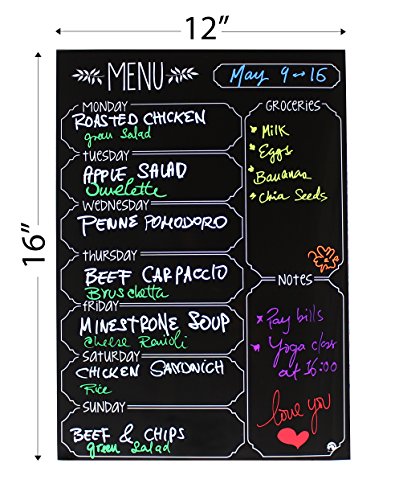 12”
16”
MENU
May 9 - 16
MONDAY
ROASTED CHICKEN
green Salad
TUESDAY
APPLE SALAD
Omelette
WEDNESDAY
PENNE POMODORO
THURSDAY
BEEF CARPACCIO
Bruschetta
FRIDAY
MINESTRONE SOUP
Cheese Ravioli
SATURDAY
CHICKEN SANDWICH
Rice
SUNDAY
BEEF & CHIPS
green Salad
GROCERIES
* Milk
* Eggs
* Bananas
* Chia Seeds
NOTES
* Pay bills
* Yoga class
at 16:00
love you